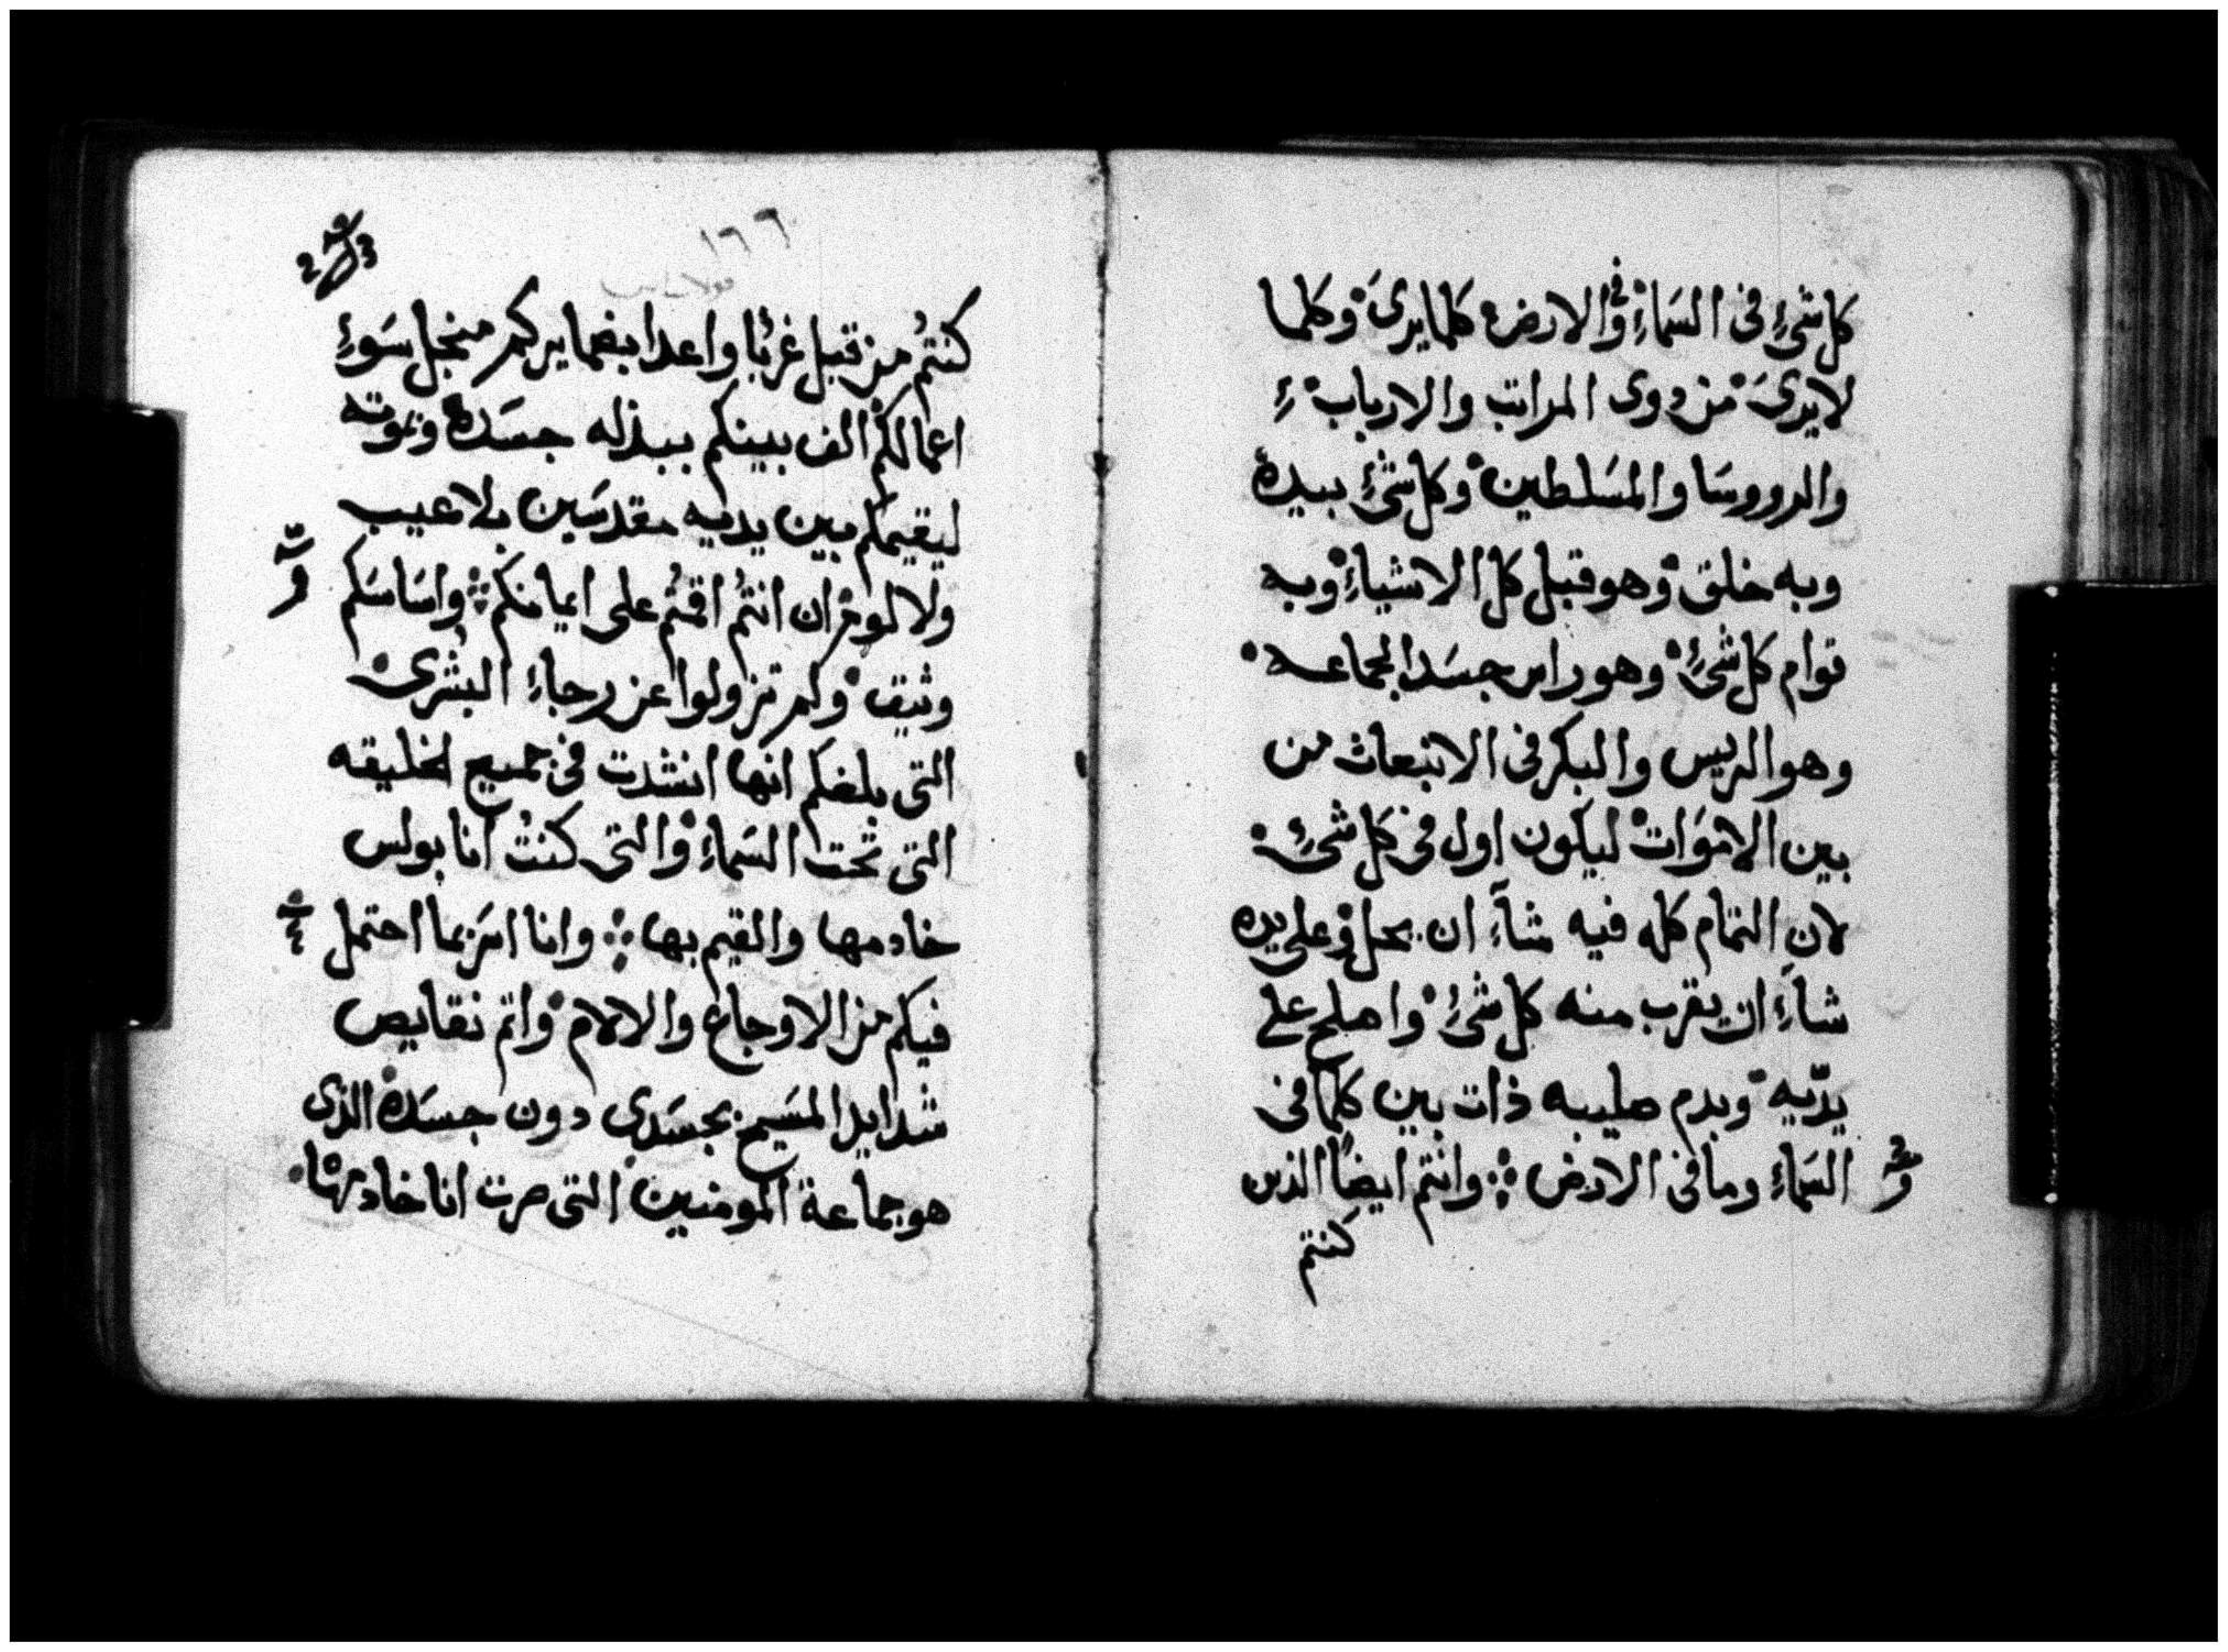 كل شىءٍ فى السَماءِ وفى الارض كلما يرىَ وكلما
لا يرىَ من ذوى المراتب والارباب
والرووسَا والمسَلطين وكل شىءٍ بيده
وبه خلق وهو قبل كل الاشياءِ وبه
قوام كل شىءٍ وهو راس جسَد الجماعه
وهو الريس والبكر فى الانبعاث من
بين الاموَات ليكون اول فى كل شىءٍ
لان التمام كله فيه شآءِ ان يحل وعلى يده
شآءِ ان يقرب منه كل شىءٍ واصلح على
يدّيه وبدم صليبه ذات بين كلما فى
السَماءِ وما فى الارض وانتم ايضاً الذين
كنتم
١٦٦
كنتُم من قبل غربًا واعدا بضمايركم منجل سَوءِ
اعمالكم الف بينكم ببذله جسَده وموته
ليقيمكم بين يديه مقدسَين بلا عيب
ولا لوم ان انتُم اقمتُم على ايمانكم واسَاسَكم
وثيق ولم تزولوا عن رجاءِ البشرى
التى بلغكم انها انشدت فى جميع الخليقه
التى تحت السَماءِ والتى كنتُ انا بولس
خادمها والقيم بها وانا اسَر بما احتمل
فيكم من الاوجاع والالام واتم نقايص
شدايد المسَيح بجسَدى دون جسَده الذى
هو جماعة المومنين التى صرت انا خادمها